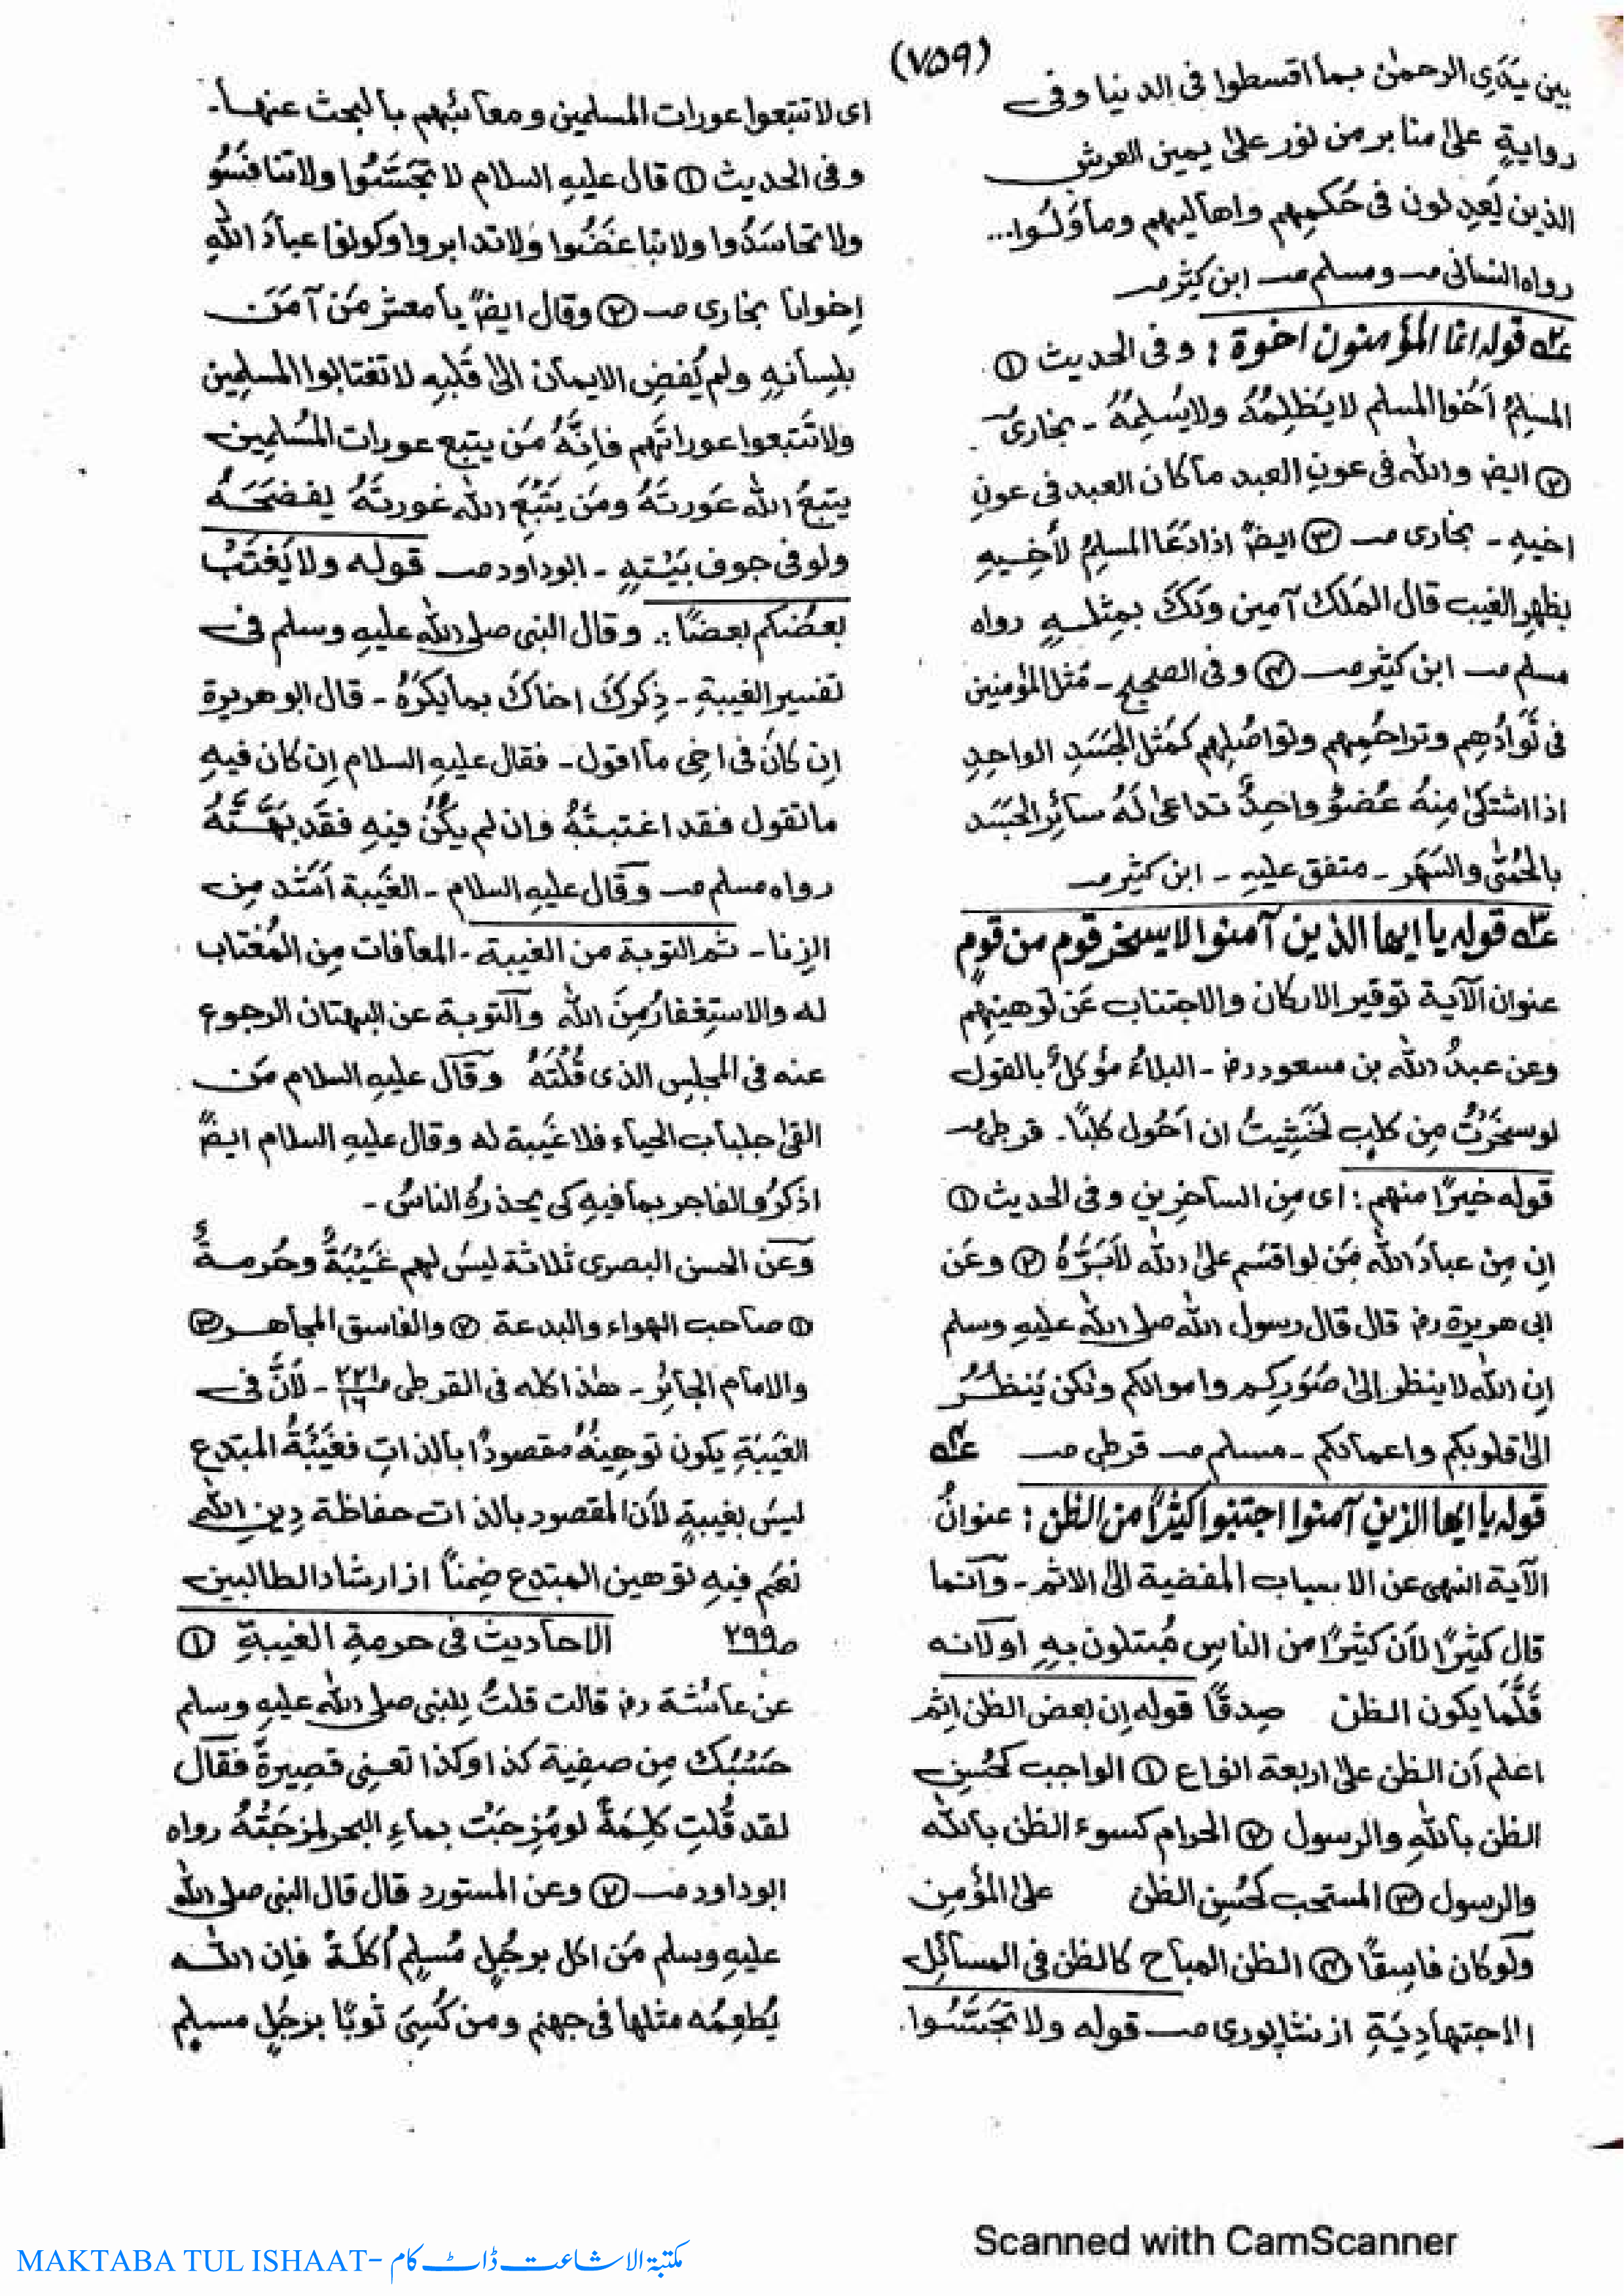 (٧٥٩)
بين يَدَىِ الرحمٰن بما اقسطوا فى الدنيا وفى
روايةٍ علىٰ منابر من نور علىٰ يمين العرش
الذين يَعدِلون فى حُكمِهم واهاليهم وماوَلُوا...
رواه النسائى صـ ومسلم صـ ابن كثير صـ
عـ٢ـه قوله انما المؤمنون اخوة : وفى الحديث ①
المسلِمُ اَخُوا المسلم لا يَظلِمُهُ ولا يُسْلِمُهُ - بخارى
② ايضـ والله فى عونِ العبد ما كان العبد فى عونِ
اخيهِ - بخارى صـ ③ ايضـً اذا دَعَا المسلِمُ لأَخِيهِ
بظهرِ الغيب قال المَلَك آمين ولَكَ بمِثلهٖ رواه
مسلم صـ ابن كثير صـ ④ وفى الصحيح - مَثل المؤمنين
فى تَوَادُّهِم وتراحُمِهم وتواصُلِهم كمَثل الجَسَدِ الواحِدِ
اذا اشتكىٰ مِنهُ عُضوٌ واحِدٌ تداعىٰ لَهُ سائِر الجَسَد
بالحُمّٰى والسَهَر - متفق عليهِ - ابن كثير صـ
عـ٣ـه قوله يا ايها الذين آمنوا لا يسخر قوم من قومٍ
عنوان الآية توقير الاركان والاجتناب عَن توهينِهِم
وعن عبدُ الله بن مسعود رض - البلاءُ مؤكلٌ بالقول
لو سخَرْتُ مِن كلبٍ لَخَشِيتُ ان اَحُول كلبًا - قرطبى صـ
قوله خيرًا منهم : اى مِن الساخِرين وفى الحديث ①
اِن مِن عبادَ الله مَن لو اقسَم علىٰ الله لأَبَرَّهُ ② وعَن
ابى هريرة رض قال قال رسول الله صلى الله عليهِ وسلم
اِن الله لا ينظر اِلىٰ صُوَرِكم واموالكم ولكن يَنظُرُ
الىٰ قلوبكم واعمالكم - مسلم صـ قرطبى صـ عـ٤ـه
قوله يا ايها الذين آمنوا اجتنبوا كثيرًا من الظن : عنوانُ
الآية النهى عن الاسباب المفضية الى الاثم - وآنما
قال كثيرًا لأن كثيرًا من الناسِ مُبتلون بهِ او لانه
قَلَّمَا يكون الظن صِدقًا قوله اِن بعض الظن اِثم
اعلم اَن الظن علىٰ اربعة انواع ① الواجب كحُسنِ
الظن باللهِ والرسول ② الحرام كسوء الظن باللّٰه
والرسول ③ المستحب كحُسنِ الظن علىٰ المؤمِن
ولو كان فاسِقًا ④ الظن المباح كالظن فى المسائِل
الاجتهادِيَةِ از نشاپورى صـ قوله ولا تَجَسَّسُوا.
اى لا تتبعوا عورات المسلمين ومعائبهم بالبحث عنها -
وفى الحديث ① قال عليهِ السلام لا تَجَسَّسُوا ولا تنافَسُو
ولا تحاسَدُوا ولا تباغَضُوا ولا تدابروا وكونوا عبادَ اللهِ
اِخوانا بخارى صـ ② وقال ايضـً يا معشر مَن آمَنَ
بلِسانِهٖ ولم يُفضِ الايمان الىٰ قَلبِهٖ لا تغتابوا المسلِمين
ولا تَتبعوا عوراتَهم فاِنَّهُ مَن يتبع عورات المُسْلِمين
يتبعُ الله عَورتَهُ ومَن يَتَّبَعِ الله عَورتَهُ يفضَحهُ
ولو فى جوف بَيْتِهٖ - ابوداود صـ قوله ولا يَغتَبْ
بعضُكم بعضًا :. وقال النبى صلى الله عليهِ وسلم فى
تفسير الغيبةِ - ذِكركَ اخاكَ بما يكرَهُ - قال ابوهريرة
اِن كانَ فى اخى ما اقول - فقال عليهِ السلام اِن كان فيهِ
ما تقول فقد اغتبتَهُ وان لم يكُنْ فيهِ فقَد بَهَتَّهُ
رواه مسلم صـ وقَال عليهِ السلام - الغَيبة اَشَد مِن
الزِنا - ثم التوبة من الغيبة - المعافات مِن المُغتاب
له والاستِغفارُ مِنَ الله والتوبة عن البهتان الرجوع
عنه فى المجلِسِ الذى قُلْتَهُ وقَال عليهِ السلام مَن
القىٰ جلباب الحياء فلا غَيبة له وقال عليهِ السلام ايضـً
اذكرُو الفاجر بما فيهِ كى يحذرهُ الناسُ -
وعَن الحسن البصرى ثلاثة ليسَ لهم غَيْبَةٌ وحُرمةٌ
① صاحب الهواء والبدعة ② والفاسق المجاهر ③
والامام الجائر - هٰذا كله فى القرطبى ص ٢٢١/١٦ - لأنَّ فى
الغَيبَةِ يكون توهِينُهُ مقصودًا بالذاتِ فغَيبَةُ المبتدع
ليسَ بغيبةٍ لأن المقصود بالذات حفاظة دِينِ اللهِ
نعَم فيهِ توهين المبتدع ضِمناً از ارشاد الطالبين
صـ ٢٩٩ الاحاديث فى حرمةِ الغيبةِ ①
عن عائشة رض قالت قلتُ لِلنبى صلى الله عليهِ وسلم
حَسْبُكَ مِن صفِية كذا وكذا تعنِى قصِيرةً فَقال
لقد قُلتِ كلِمَةً لو مُزِجَتْ بماءِ البحر لمزجَتْهُ رواه
ابوداود صـ ② وعن المستورد قال قال النبى صلى الله
عليهِ وسلم مَن اكل برجُلٍ مُسلِمٍ اُكلَةً فاِن اللّٰه
يُطعِمُه مثلها فى جهنم ومن كُسِىَ ثوبًا برجُلٍ مسلِمٍ
Scanned with CamScanner
MAKTABA TUL ISHAAT- مکتبۃ الاشاعت ڈاٹ کام